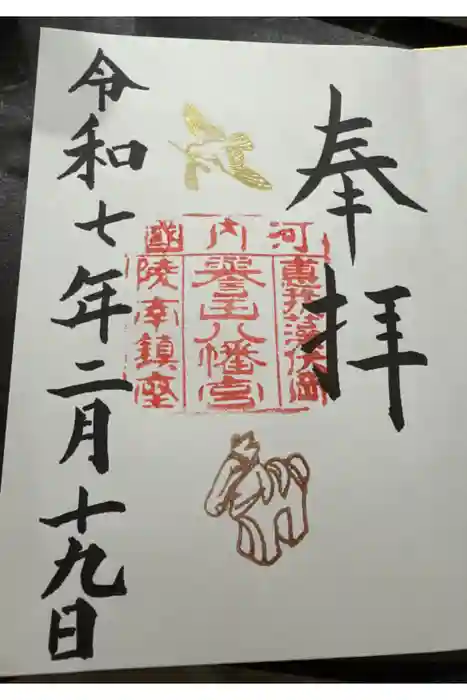 奉拝
河内國
惠我藻伏岡
譽田八幡宮
陵南鎮座
令和七年二月十九日